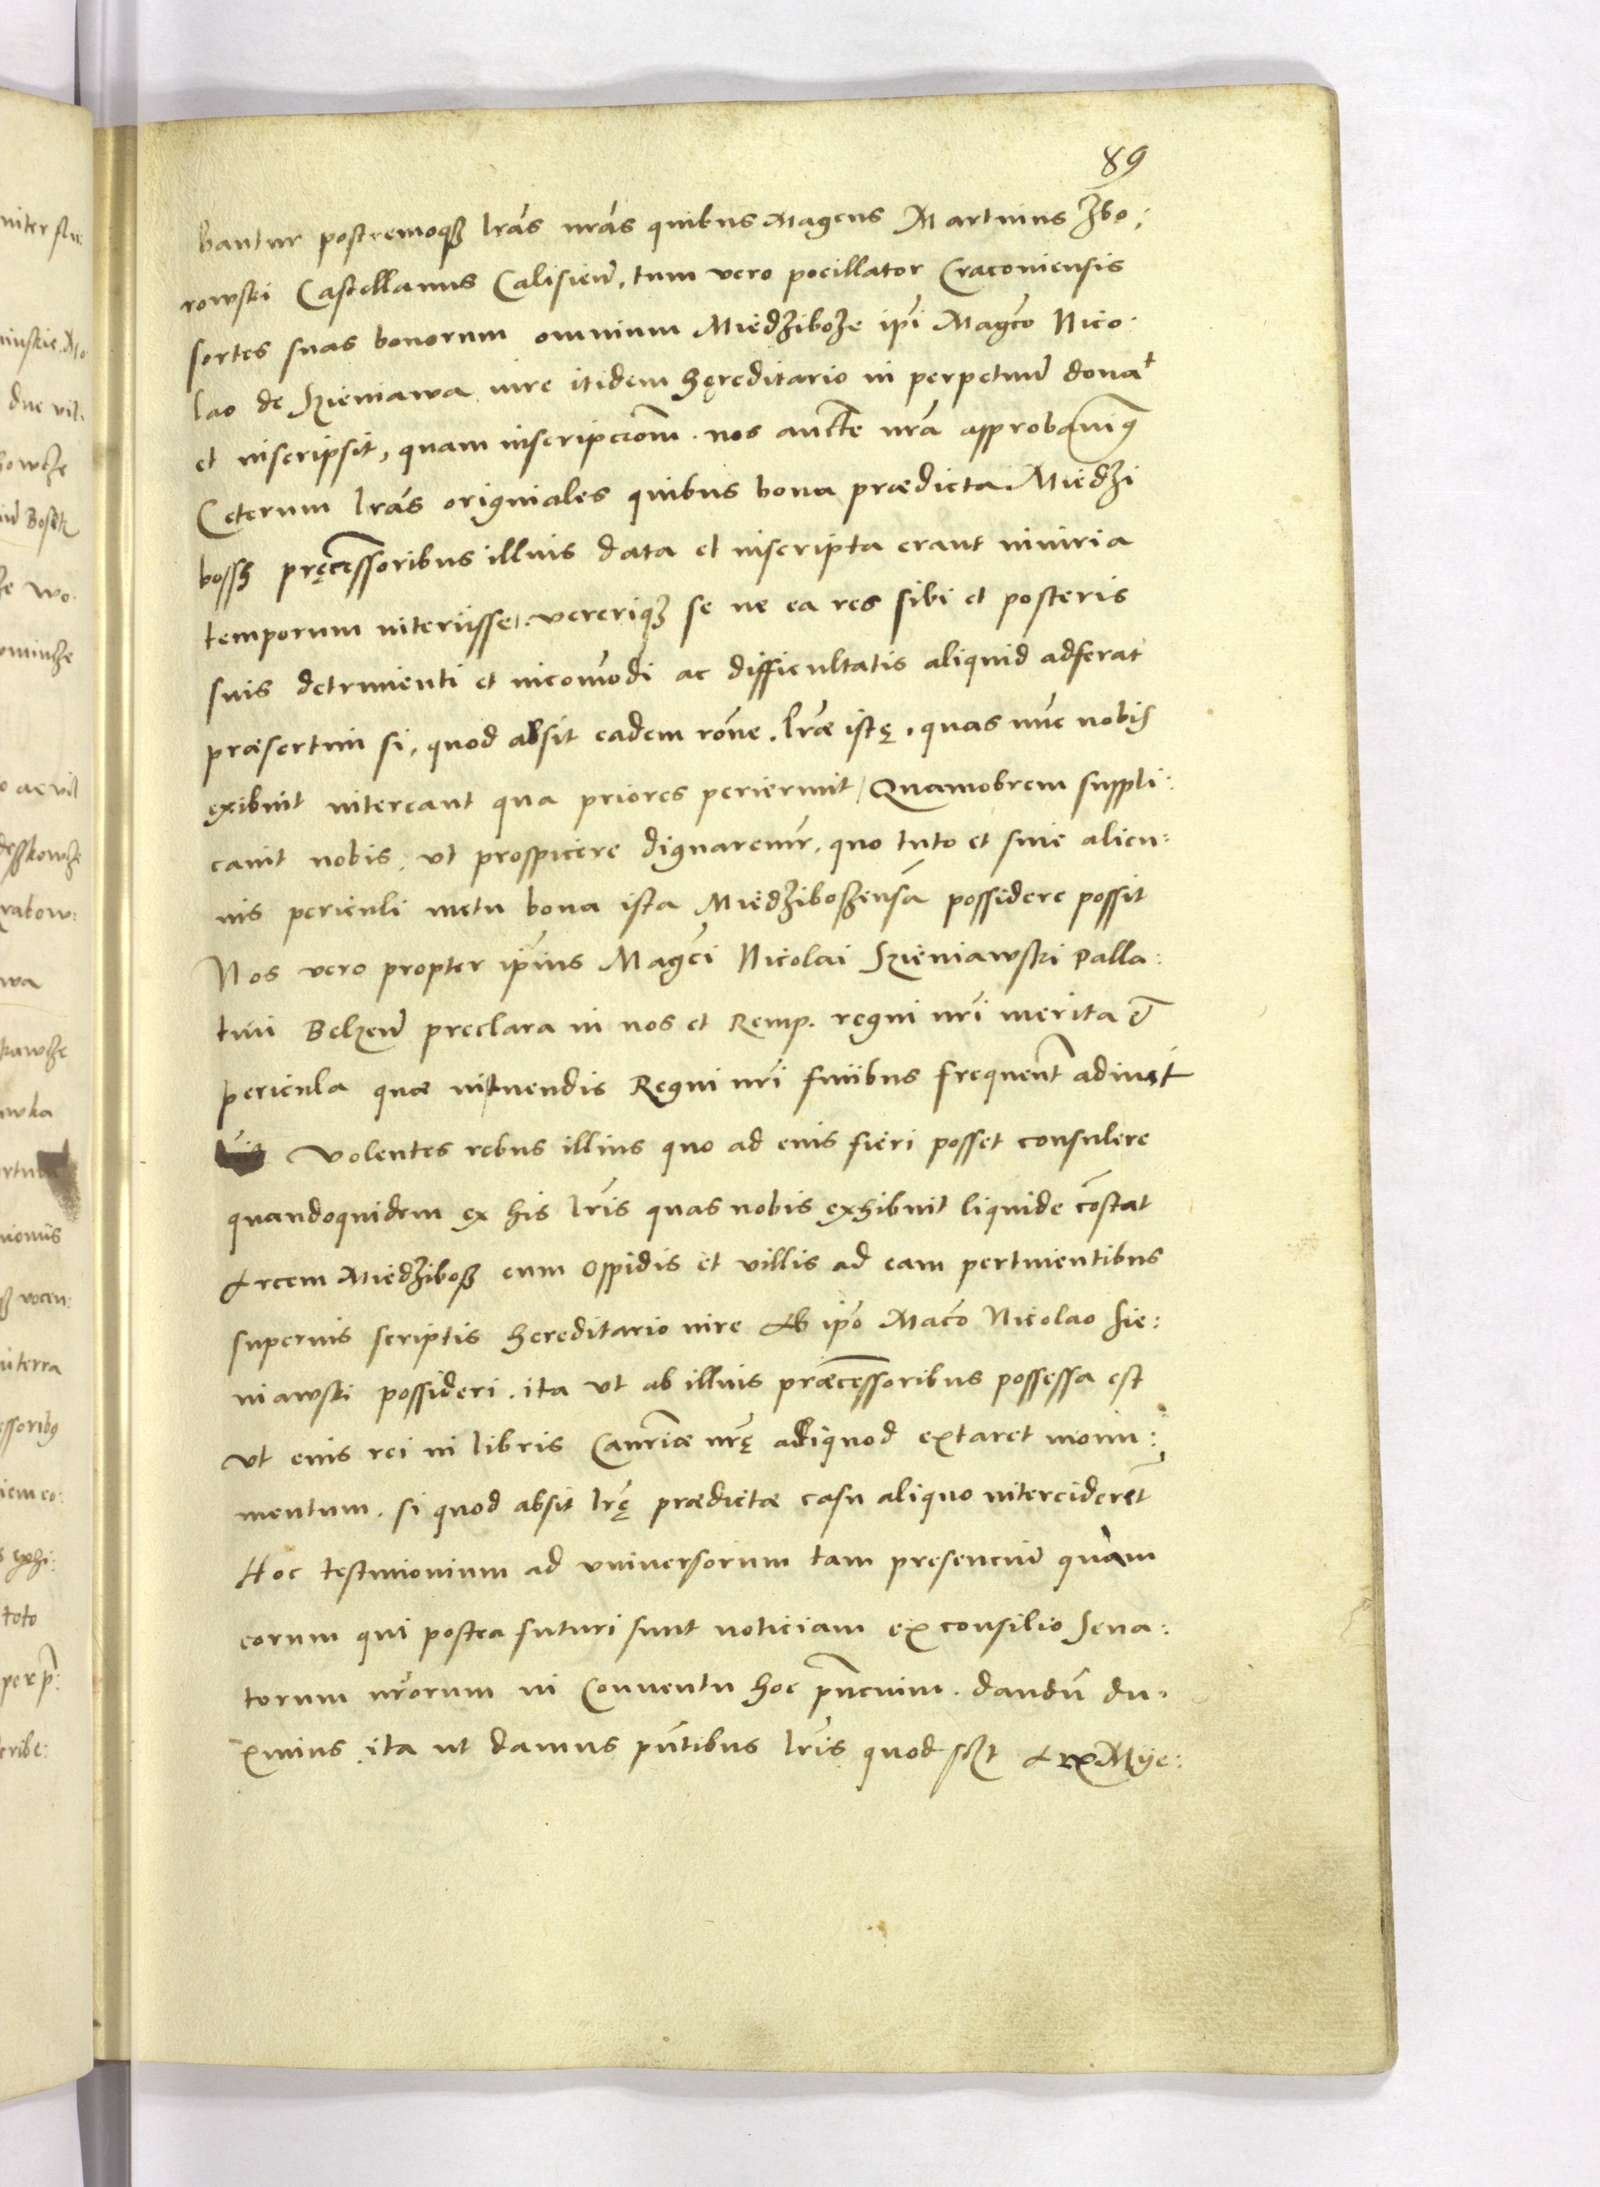 89
bantur postremoq3 lrás nrás quibus Magcus Martinus Zbo:
rowski Castellanus Calisien̄, tum vero pocillator Cracouiensis
sortes suas bonorum omnium Miedziboze ipī Magco Nico:
lao de Szieniawa iure itidem hęreditario in perpetuū dona+
et inscripsit, quam inscripcioēm. nos aucte nrā approbauimꝰ
Ceterum lrās originales quibus bona praedicta Miedzi
bossz pręcessoribus illius data et inscripta erant iniuria
temporum interiisse, vereriq3 se ne ea res sibi et posteris
suis detrimenti et incomōdi ac difficultatis aliquid adferat
praesertim si, quod absit eadem rōne. lrae istę, quas nūc nobis
exibuit intereant qua priores perierunt, Quamobrem suppli:
cauit nobis, vt prospicere dignaremr̄, quo tuto et sine alicu:
ius periculi metu bona ista Miedzibozensā possidere possit
Nos vero propter ipīus Magci Nicolai Szieniawski Palla:
tini Belzeū preclara in nos et Remp. regni nrī merita &
pericula quae in tuendis Regni nrī finibus frequent̄ adiuit
Volentes rebus illius quo ad eius fieri posset consulere
quandoquidem ex his lrīs quas nobis exhibuit liquide cōstat
Arcem Miedzibosz cum Oppidis et villis ad eam pertinentibus
superius scriptis hereditario iure Ab ipō Maco Nicolao Sie:
niawski possideri. ita vt ab illius praecessoribus possessa est
Vt eius rei in libris Canrīae nrę aliquod extaret moni:
mentum. si quod absit lrę praedictae casu aliquo interciderēt
Hoc testimonium ad vniuersorum tam presenciū quam
eorum qui postea futuri sunt noticiam ex consilio Sena:
torum nrorum in Conuentu hoc pn̄cium. dandū du:
ximus ita ut damus pn̄tibus lrīs quod sczt Arx Mye: